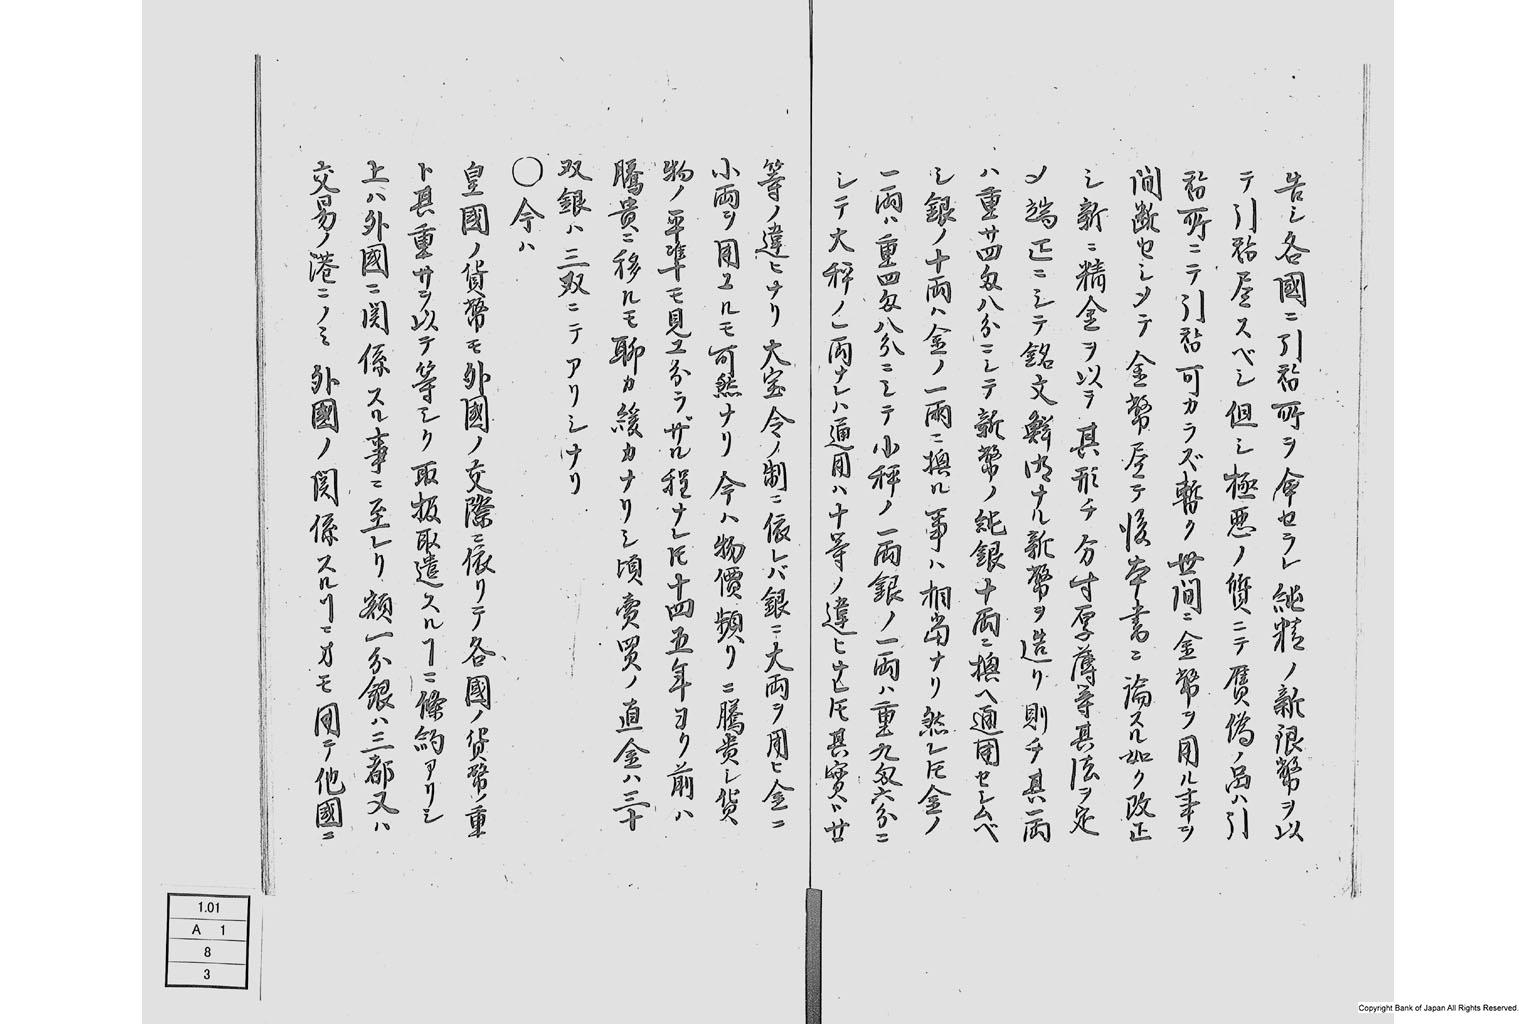 告シ各國ニ引替所ヲ命セラレ純精ノ新銀幣ヲ以
テ引替居スベシ但シ極悪ノ質ニテ贋偽ノ品ハ引
替所ニテ引替可カラズ暫ク世間ニ金幣ヲ用ル事ヲ
間断セシメテ金幣居テ後本書ニ論スル如ク改正
シ新ニ精金ヲ以テ其形チ分寸厚薄等其法ヲ定
メ端正ニシテ銘文鮮明ナル新幣ヲ造リ則チ其一両
ハ重廿四匁八分ニシテ新幣ノ純銀十両ニ換ヘ通用セシムベ
シ銀ノ十両ハ金ノ一両ニ換ル事ハ相當ナリ然レ𪜈金ノ
一両ハ重四匁八分ニシテ小秤ノ一両銀ノ一両ハ重九匁六分ニ
シテ大秤ノ一両ナレハ通用ハ十等ノ違ヒナレ𪜈其實ハ廿
等ノ違ヒナリ大宝令ノ制ニ依レバ銀ニ大両ヲ用ヒ金ニ
小両ヲ用ユルモ可然ナリ今ハ物價頻リニ騰貴シ貨
物ノ平準モ見ユ分ラザル程ナレ𪜈十四五年ヨリ前ハ
騰貴ニ移ルモ聊カ緩カナリシ頃賣買ノ直金ハ三十
双銀ハ三双ニテアリシナリ
○今ハ
皇國ノ貨幣モ外國ノ交際ニ依リテ各國ノ貨幣ノ重
ト其重サヲ以テ等シク取扱取遣スルヿニ條約アリシ
上ハ外國ニ関係スル事ニ至レリ額一分銀ハ三都又ハ
交易ノ港ニノミ外國ノ関係スルヿニカモ因テ他國ニ
1.01
A 1
8
3
Copyright Bank of Japan All Rights Reserved.